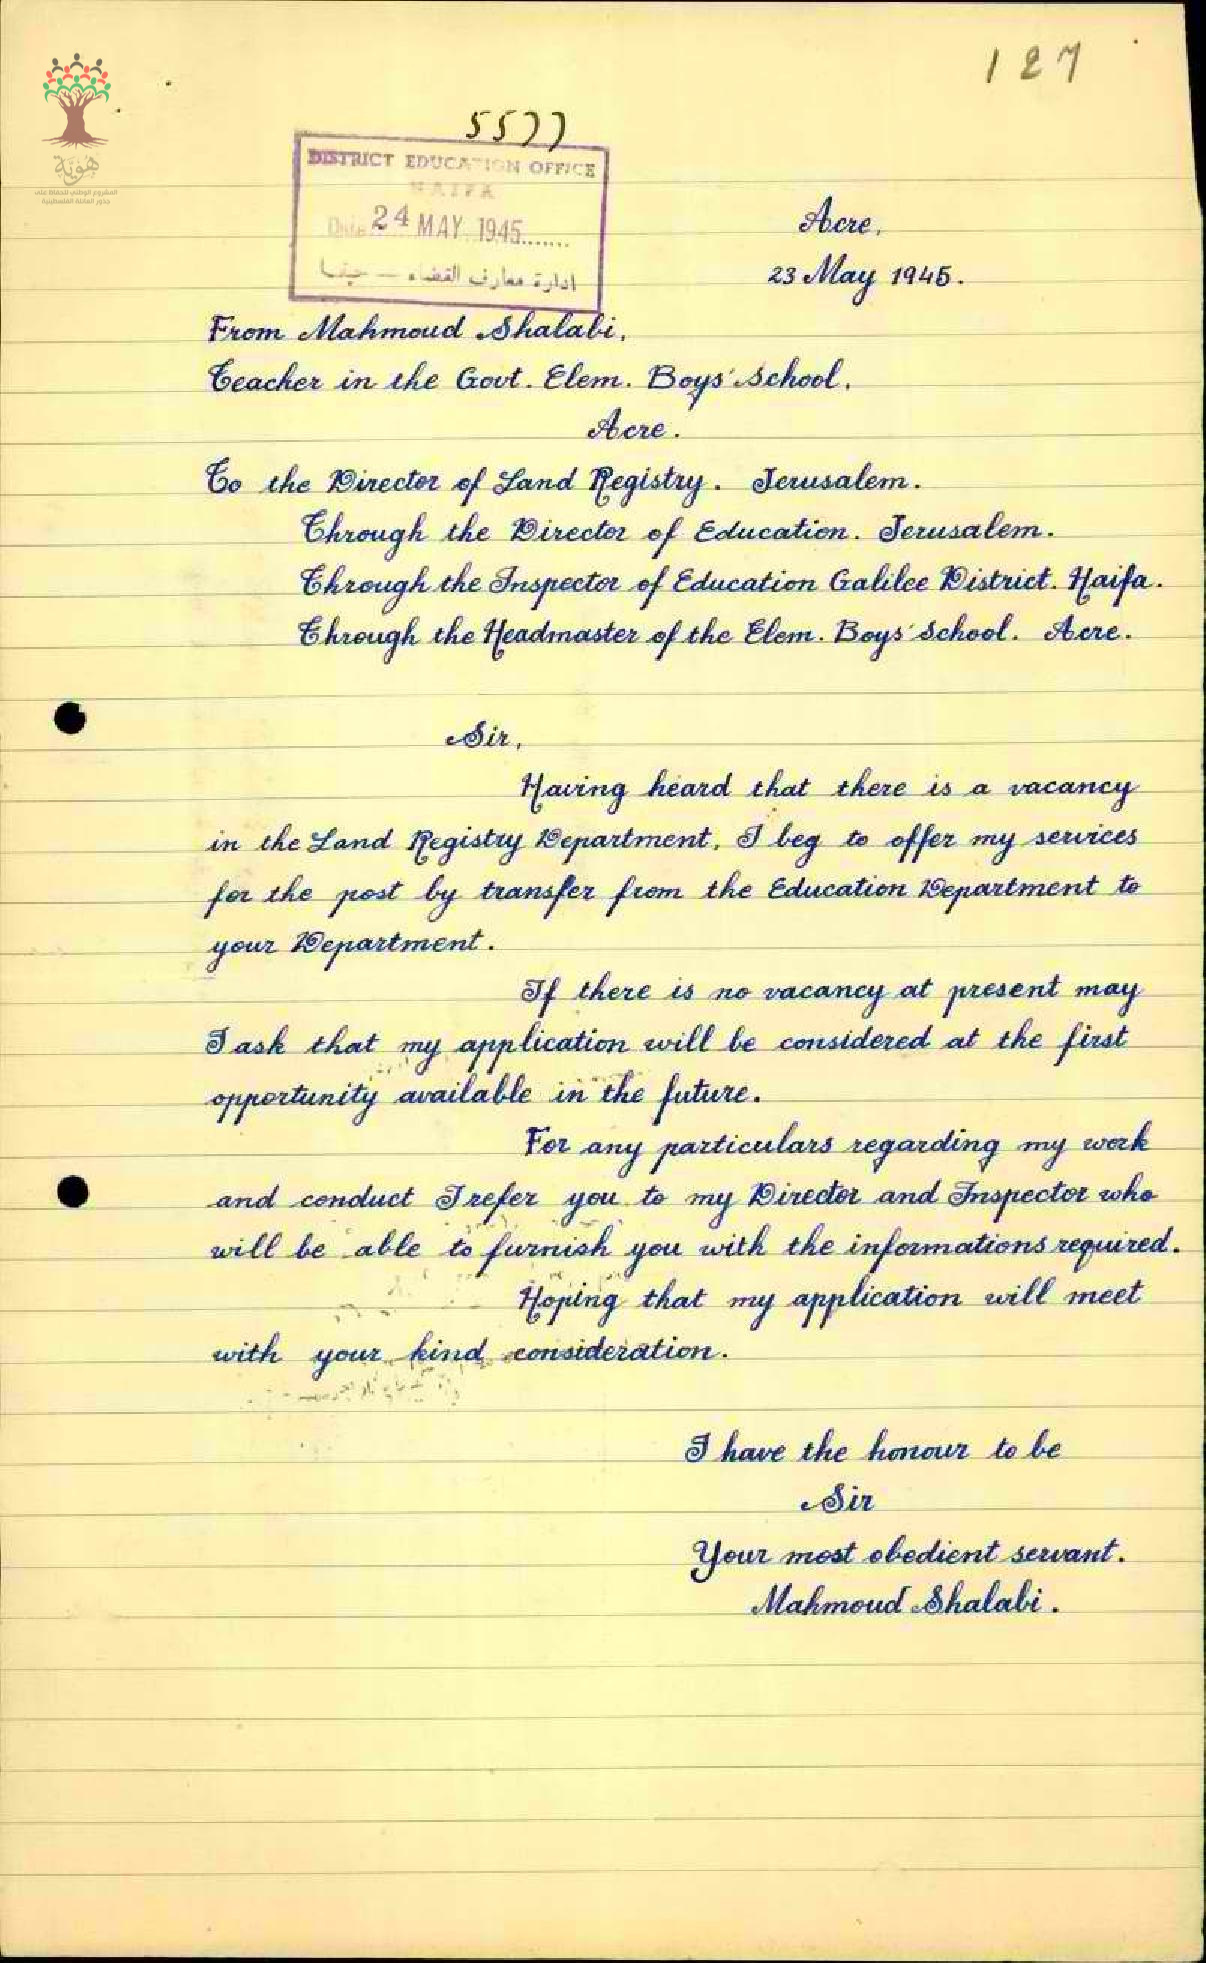 127
5577
هوية
المشروع الوطني للحفاظ على
جذور العائلة الفلسطينية
DISTRICT EDUCATION OFFICE
HAIFA
Date 24 MAY 1945
ادارة معارف القضاء — حيفا
Acre.
23 May 1945.
From Mahmoud Shalabi.
Teacher in the Govt. Elem. Boys' School.
Acre.
To the Director of Land Registry. Jerusalem.
Through the Director of Education. Jerusalem.
Through the Inspector of Education Galilee District. Haifa.
Through the Headmaster of the Elem. Boys' School. Acre.
Sir,
Having heard that there is a vacancy
in the Land Registry Department, I beg to offer my services
for the post by transfer from the Education Department to
your Department.
If there is no vacancy at present may
I ask that my application will be considered at the first
opportunity available in the future.
For any particulars regarding my work
and conduct I refer you to my Director and Inspector who
will be able to furnish you with the informations required.
Hoping that my application will meet
with your kind consideration.
I have the honour to be
Sir
Your most obedient servant.
Mahmoud Shalabi.